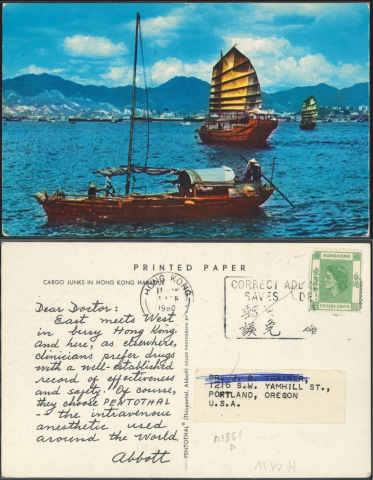 PRINTED PAPER
CARGO JUNKS IN HONG KONG HARBOUR
Dear Doctor:
East meets West
in busy Hong Kong.
And here, as elsewhere,
clinicians prefer drugs
with a well-established
record of effectiveness
and safety. Of course,
they choose PENTOTHAL
- the intravenous
anesthetic used
around the World.
Abbott
PENTOTHAL® (Thiopental, Abbott) COLOR PHOTOGRAPH BY
HONG KONG
1960
CORRECT ADD
SAVES DE
誤免
HONGKONG
FIFTEEN CENTS
1216 S.W. YAMHILL ST.,
PORTLAND, OREGON
U.S.A.